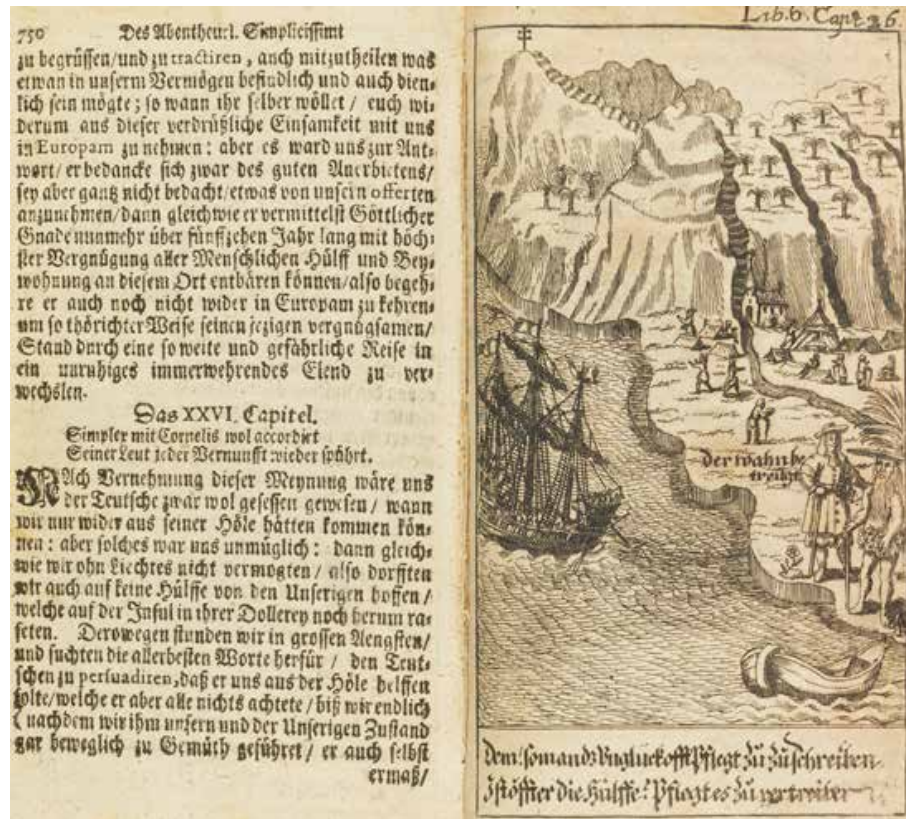 750 Des Abentheurl. Simplicissimi
zu begrüssen/und zu tractiren, auch mitzutheilen was
etwan in unserm Vermögen befindlich und auch dien-
lich sein mögte; so wann ihr selber wöllet / euch wi-
derum aus dieser verdrüßliche Einsamkeit mit uns
in Europam zu nehmen: aber es ward uns zur Ant-
wort/ er bedancke sich zwar des guten Anerbietens/
sey aber gantz nicht bedacht/etwas von unsern offerten
anzunehmen/dann gleich wie er vermittelst Göttlicher
Gnade nunmehr über fünffzehen Jahr lang mit höch-
ster Vergnügung aller Menschlichen Hülff und Bey-
wohnung an diesem Ort entbären können/also begeh-
re er auch noch nicht wider in Europam zu kehren-
um so thörichter Weise seinen jezigen vergnügsamen/
Stand durch eine so weite und gefährliche Reise in
ein unruhiges immerwehrendes Elend zu ver-
wechslen.
Das XXVI. Capitel.
Simplex mit Cornelis wol accordirt
Seiner Leut jeder Vernunfft wieder spührt.
NAch Vernehmung dieser Meynung wäre uns
der Teutsche zwar wol gesessen gewesen / wann
wir nur wider aus seiner Höle hätten kommen kön-
nen: aber solches war uns unmüglich: dann gleich-
wie wir ohn Liechtes nicht vermogten / also dorfften
wir auch auf keine Hülffe von den Unserigen hoffen /
welche auf der Insul in ihrer Dollerey noch herum ra-
seten. Derowegen stunden wir in grossen Aengsten/
und suchten die allerbesten Worte herfür / den Teut-
schen zu persuadiren, daß er uns aus der Höle helffen
solte/welche er aber alle nichts achtete/ biß wir endlich
(nachdem wir ihm unsern und der Unserigen Zustand
gar beweglich zu Gemüth geführet/ er auch selbst
ermaß/
Lib. 6. Capt 26.
der wahn be
treügt
Dem Jomand Unglück offt Pflegt Zu Zuschreiben
die Hülffe? Pflegt es Zu vertreiben